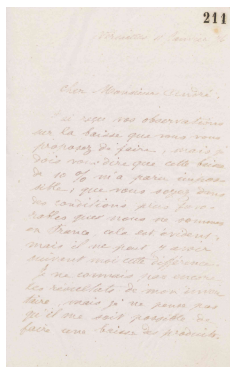 211
Cher Monsieur André,
J'ai reçu vos observations
sur la baisse que vous vous
proposez de faire, mais je
dois vous dire que cette baisse
de 10 % m'a paru impos
sible, que vous soyez dans
des conditions plus favo
rables que nous ne sommes
en France cela est évident,
mais il ne peut y avoir
suivant moi cette différence.
Je ne connais pas encore
les résultats de mon inven
taire, mais je ne pense pas
qu'il me soit possible de
faire une baisse de produits